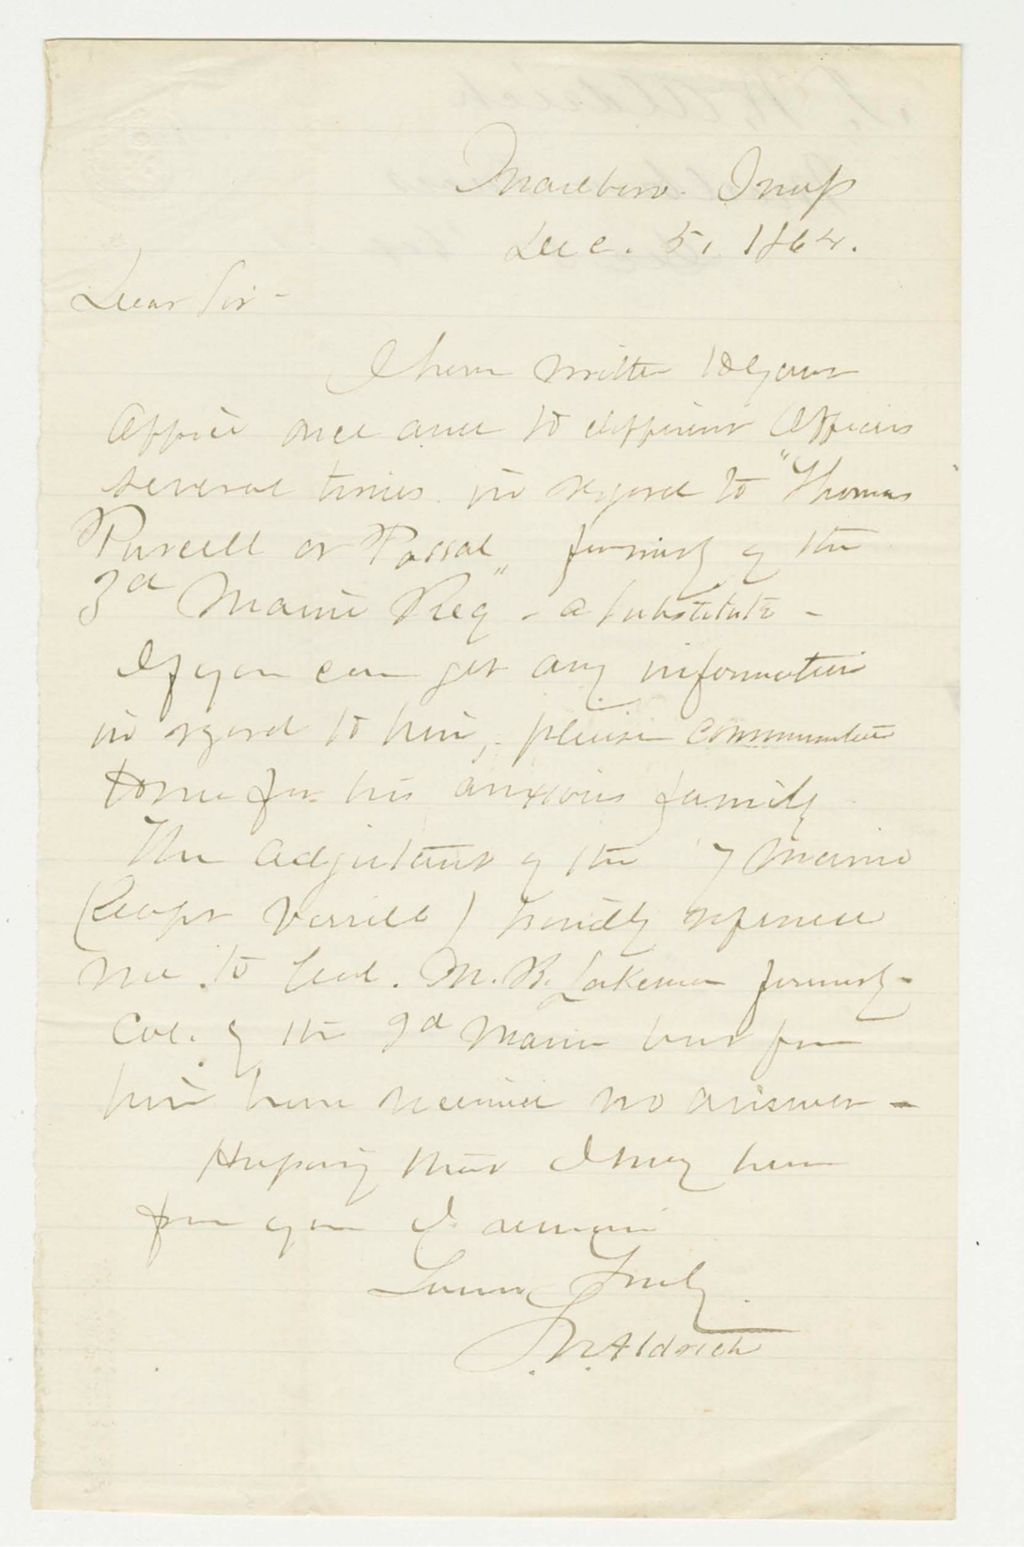 Marlboro. Mass
Dec. 5, 1864.
Dear Sir -
I have written to your
Office once and to different Officers
several times in regard to "Thomas
Purcell or Passal" formerly of the
3d Maine Reg - a substitute -
If you can get any information
in regard to him, please communicate
to me for his anxious family
The adjutant of the 7 Maine
(Capt Verrill) kindly referred
me to Col. M. B. Lakeman formerly
Col. of the 3d Maine but from
him have received no answer -
Hoping that I may hear
from you I remain
Yours Truly
Aldrich